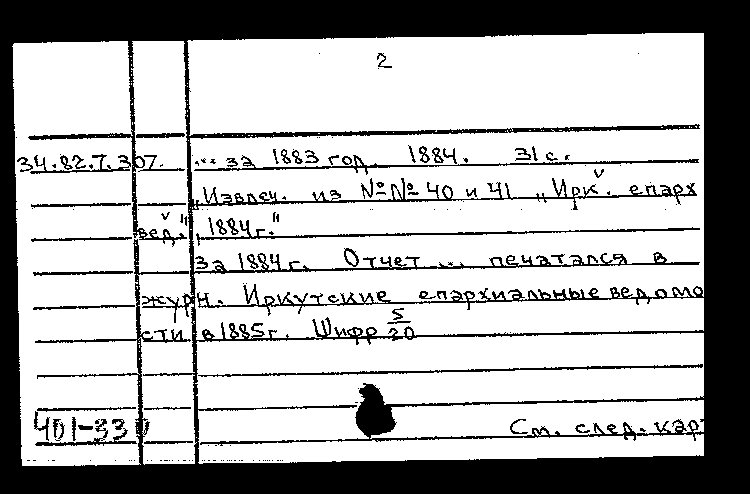 2
34.82.7.307. ... за 1883 год. 1884. 31 с.
„Извлеч. из №№ 40 и 41 „Ирк. епарх
вед.", 1884 г."
За 1884 г. Отчет ... печатался в
журн. Иркутские епархиальные ведомо
сти в 1885 г. Шифр 5/20
401-330
См. след. кар